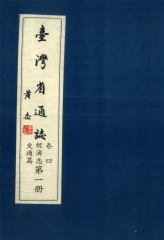 臺灣省通誌
卷四
經濟志
交通篇
第一册
黃杰